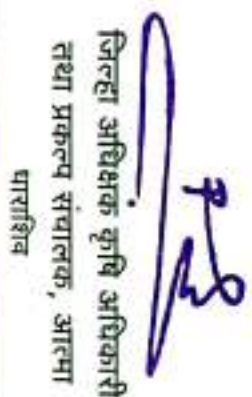 जिल्हा अधिक्षक कृषि अधिकारी
तथा प्रकल्प संचालक, आत्मा
धाराशिव